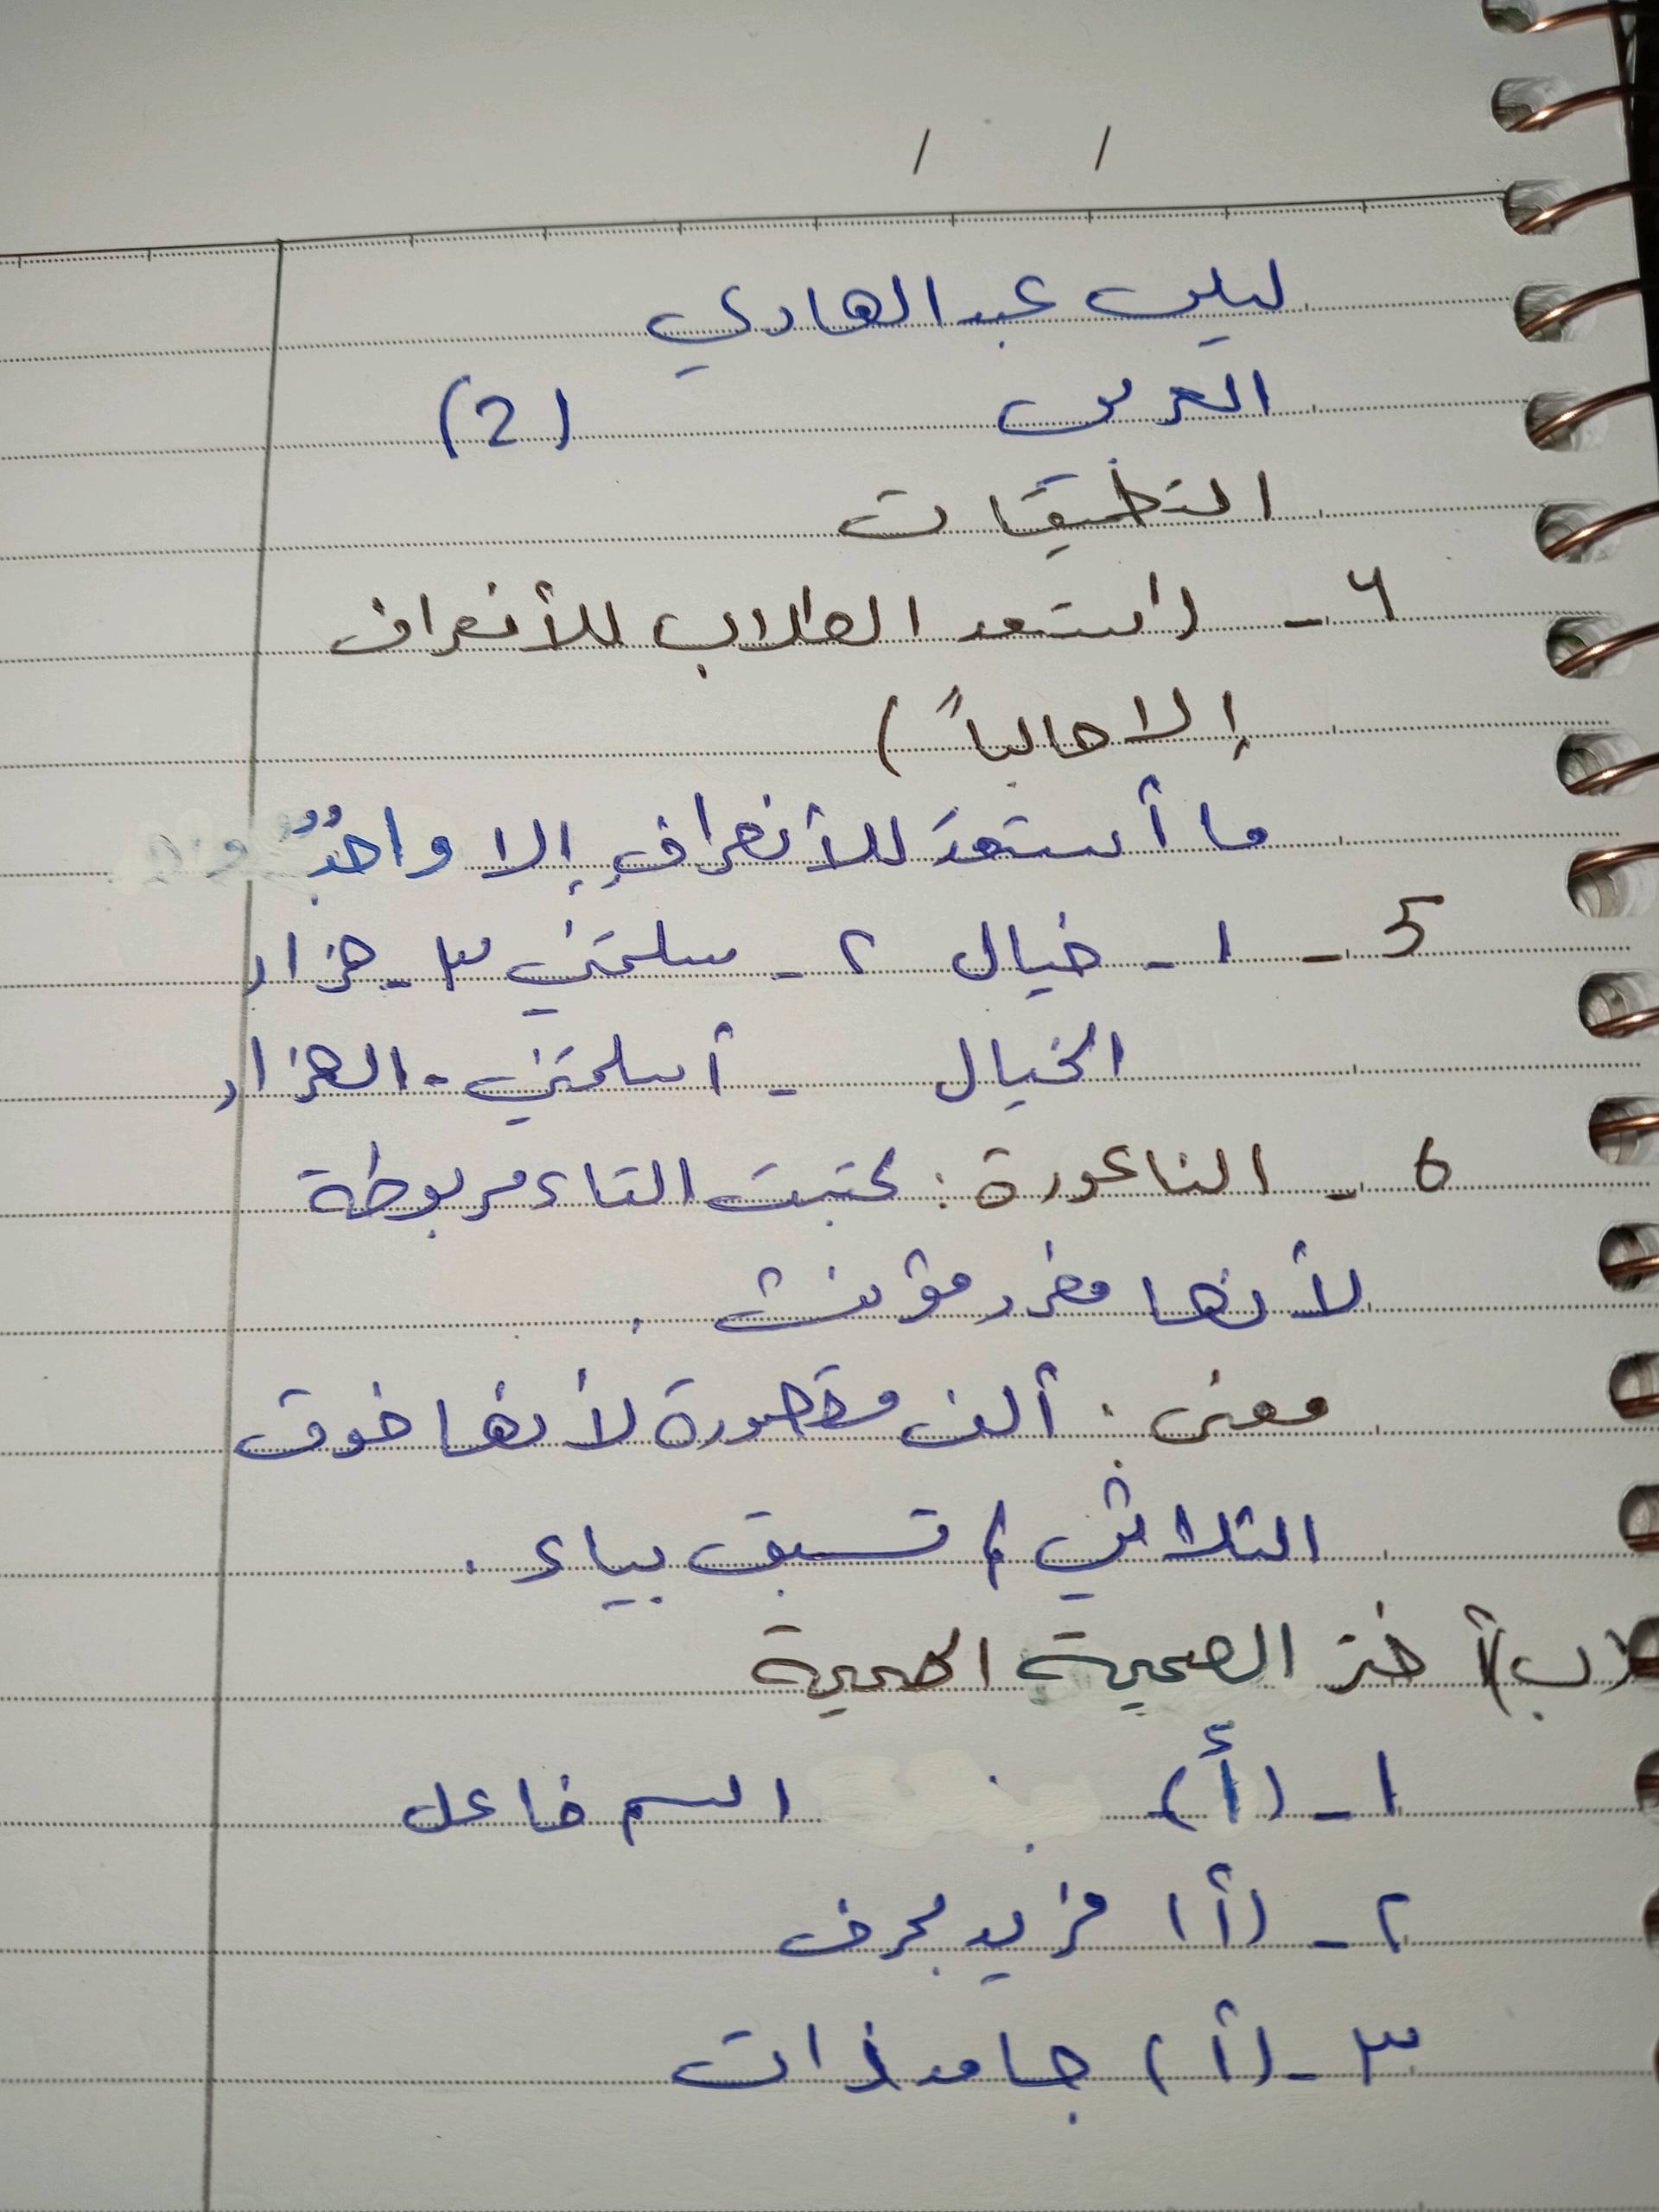 ليلى عبد الهادي
العربي (2)
التطبيقات
٤ - (استعد الطلاب للأنصراف
إلا طالباً)
ما أستعدَ للأنصرافِ إلا واحدٌ
5 - ١ - خيال ٢ - سلمتني ٣ - هزار
الخيال - أسلمتني - الهزار
6 - الناعورة: كتبت التاء مربوطة
لأنها مفرد مؤنث.
معنى: ألف مقصورة لأنها فوق
الثلاثي / تسبق بياء.
(ب) أختر الصحية الصحية
١ - (أ) اسم فاعل
٢ - (أ) مزيد بحرف
٣ - (أ) جامد ذات